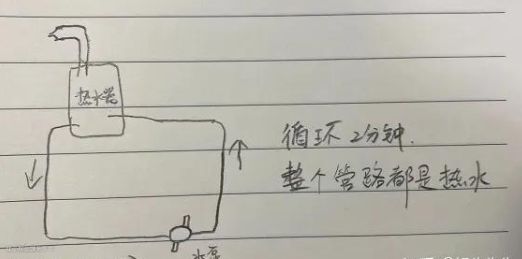 热水器
循环2分钟.
整个管路都是热水
水泵